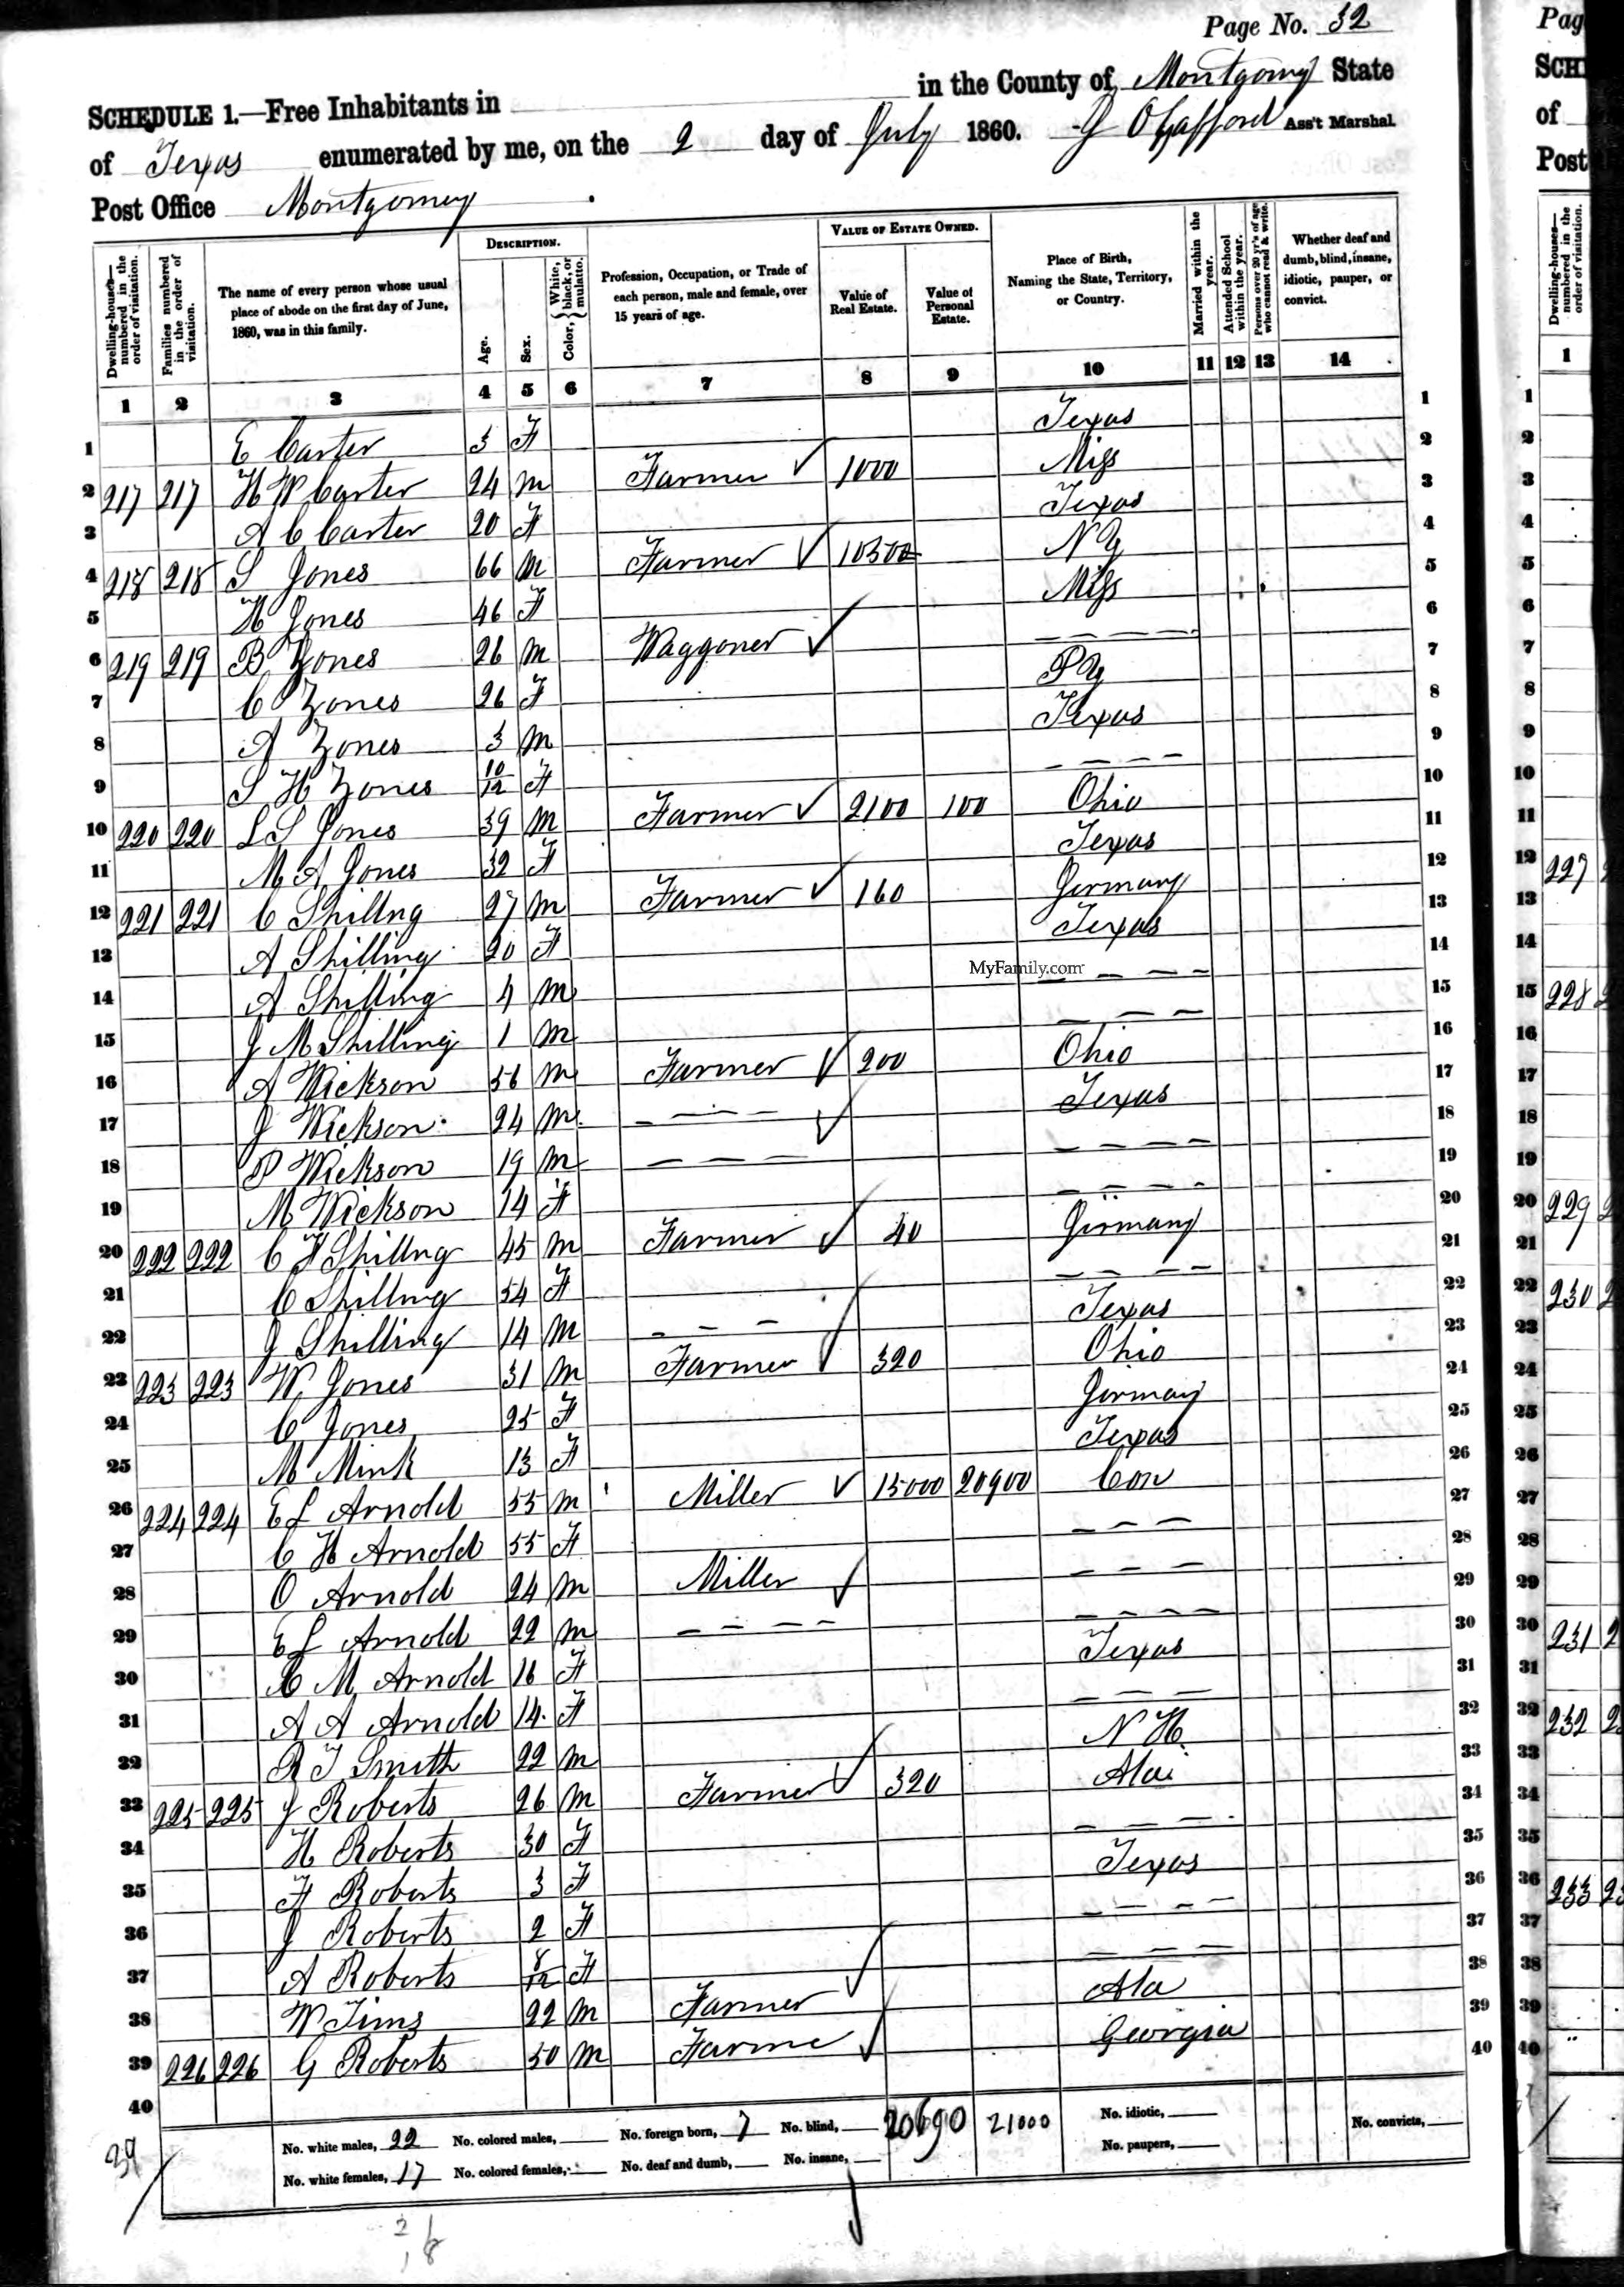 Page No. 32
SCHEDULE 1.—Free Inhabitants in in the County of Montgomy State
of Texas enumerated by me, on the 2 day of July 1860. Ass't Marshal
Post Office Montgomery
DESCRIPTION. VALUE OF ESTATE OWNED.
Dwelling-houses—numbered in the order of visitation. Families numbered in the order of visitation. The name of every person whose usual place of abode on the first day of June, 1860, was in this family. Age. Sex. Color, { White, black, or mulatto. Profession, Occupation, or Trade of each person, male and female, over 15 years of age. Value of Real Estate. Value of Personal Estate. Place of Birth, Naming the State, Territory, or Country. Married within the year. Attended School within the year. Persons over 20 yr's of age who cannot read & write. Whether deaf and dumb, blind, insane, idiotic, pauper, or convict.
1 2 3 4 5 6 7 8 9 10 11 12 13 14
1 E Carter 3 F Texas 1
2 217 217 H W Carter 24 m Farmer 1000 Miss 2
3 A C Carter 20 F Texas 3
4 218 218 S Jones 66 m Farmer 10300 N Y 4
5 H Jones 46 F Miss 5
6 219 219 B Jones 26 m Waggoner — — — — 6
7 C Jones 26 F 7
8 A Jones 3 m Texas 8
9 S H Jones 10/12 F — — — — 9
10 220 220 L S Jones 39 m Farmer 2100 100 Ohio 10
11 M A Jones 32 F Texas 11
12 221 221 C Shillng 27 m Farmer 160 Germany 12
13 A Shilling 20 F Texas 13
14 A Shilling 4 m — — — — 14
MyFamily.com
15 J M Shilling 1 m — — — 15
16 A Wickson 56 m Farmer 200 Ohio 16
17 J Wickson 24 m — — — Texas 17
18 P Wickson 19 m — — — — — — — 18
19 M Wickson 14 F — — — — 19
20 222 222 C F Shillng 45 m Farmer 40 Germany 20
21 C Shillng 54 F — — — — 21
22 J Shilling 14 m — — — Texas 22
23 223 223 W Jones 31 m Farmer 320 Ohio 23
24 C Jones 25 F Germay 24
25 M Mink 13 F Texas 25
26 224 224 E L Arnold 55 m Miller 15000 20900 Con 26
27 C H Arnold 55 F — — — 27
28 O Arnold 24 m Miller — — — 28
29 E L Arnold 22 m — — — — — — — — 29
30 C M Arnold 16 F Texas 30
31 A A Arnold 14 F — — — 31
32 R T Smith 22 m N H. 32
33 225 225 J Roberts 26 m Farmer 320 Ala 33
34 H Roberts 30 F — — — 34
35 F Roberts 3 F Texas 35
36 J Roberts 2 F — — — — 36
37 A Roberts F — — — 37
38 W Tims 22 m Farmer Ala 38
39 226 226 G Roberts 50 m Farme Georgia 39
40 40
39 No. white males, 22 No. colored males, No. foreign born, 7 No. blind, 20690 21000 No. idiotic, No. convicts,
No. white females, 17 No. colored females, No. deaf and dumb, No. insane, No. paupers,
2 6
18
Pag
SCH
of
Post
Dwelling-houses—numbered in the order of visitation.
1
1
2
3
4
5
6
7
8
9
10
11
12 227
13
14
15 228
16
17
18
19
20 229
21
22 230
23
24
25
26
27
28
29
30 231
31
32 232
33
34
35
36 233
37
38
39
40